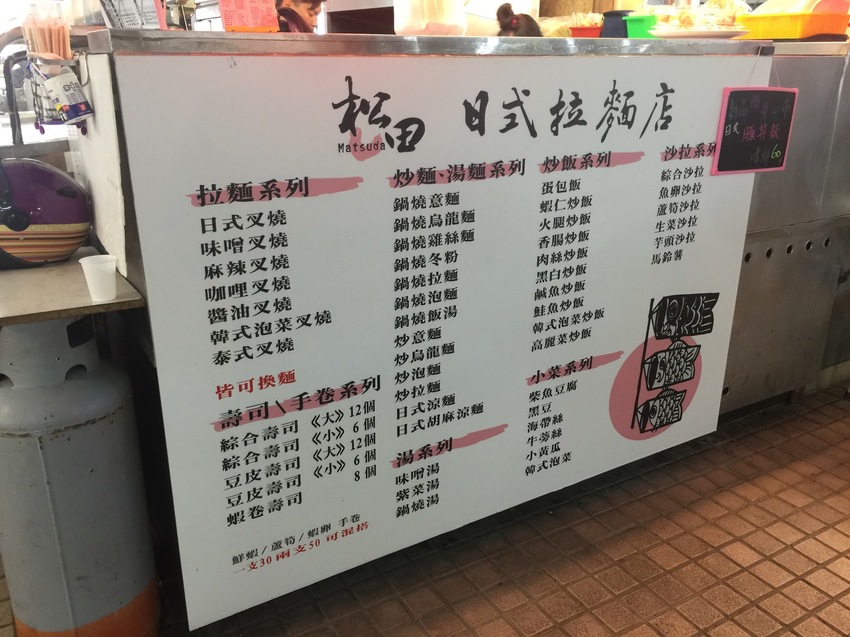 松田 日式拉麵店
Matsuda
拉麵系列
日式叉燒
味噌叉燒
麻辣叉燒
咖哩叉燒
醬油叉燒
韓式泡菜叉燒
泰式叉燒
皆可換麵
壽司\手卷系列
綜合壽司《大》12個
綜合壽司《小》6個
豆皮壽司《大》12個
豆皮壽司《小》6個
蝦卷壽司 8個
鮮蝦/蘆筍/蝦卵 手卷
一支30 兩支50 可混搭
炒麵、湯麵系列
鍋燒意麵
鍋燒烏龍麵
鍋燒雞絲麵
鍋燒冬粉
鍋燒拉麵
鍋燒泡麵
鍋燒飯湯
炒意麵
炒烏龍麵
炒泡麵
炒拉麵
日式涼麵
日式胡麻涼麵
湯系列
味噌湯
紫菜湯
鍋燒湯
炒飯系列
蛋包飯
蝦仁炒飯
火腿炒飯
香腸炒飯
肉絲炒飯
黑白炒飯
鹹魚炒飯
鮭魚炒飯
韓式泡菜炒飯
高麗菜炒飯
小菜系列
柴魚豆腐
黑豆
海帶絲
牛蒡絲
小黃瓜
韓式泡菜
沙拉系列
綜合沙拉
魚卵沙拉
蘆筍沙拉
生菜沙拉
芋頭沙拉
馬鈴薯
日式
豚丼飯
60